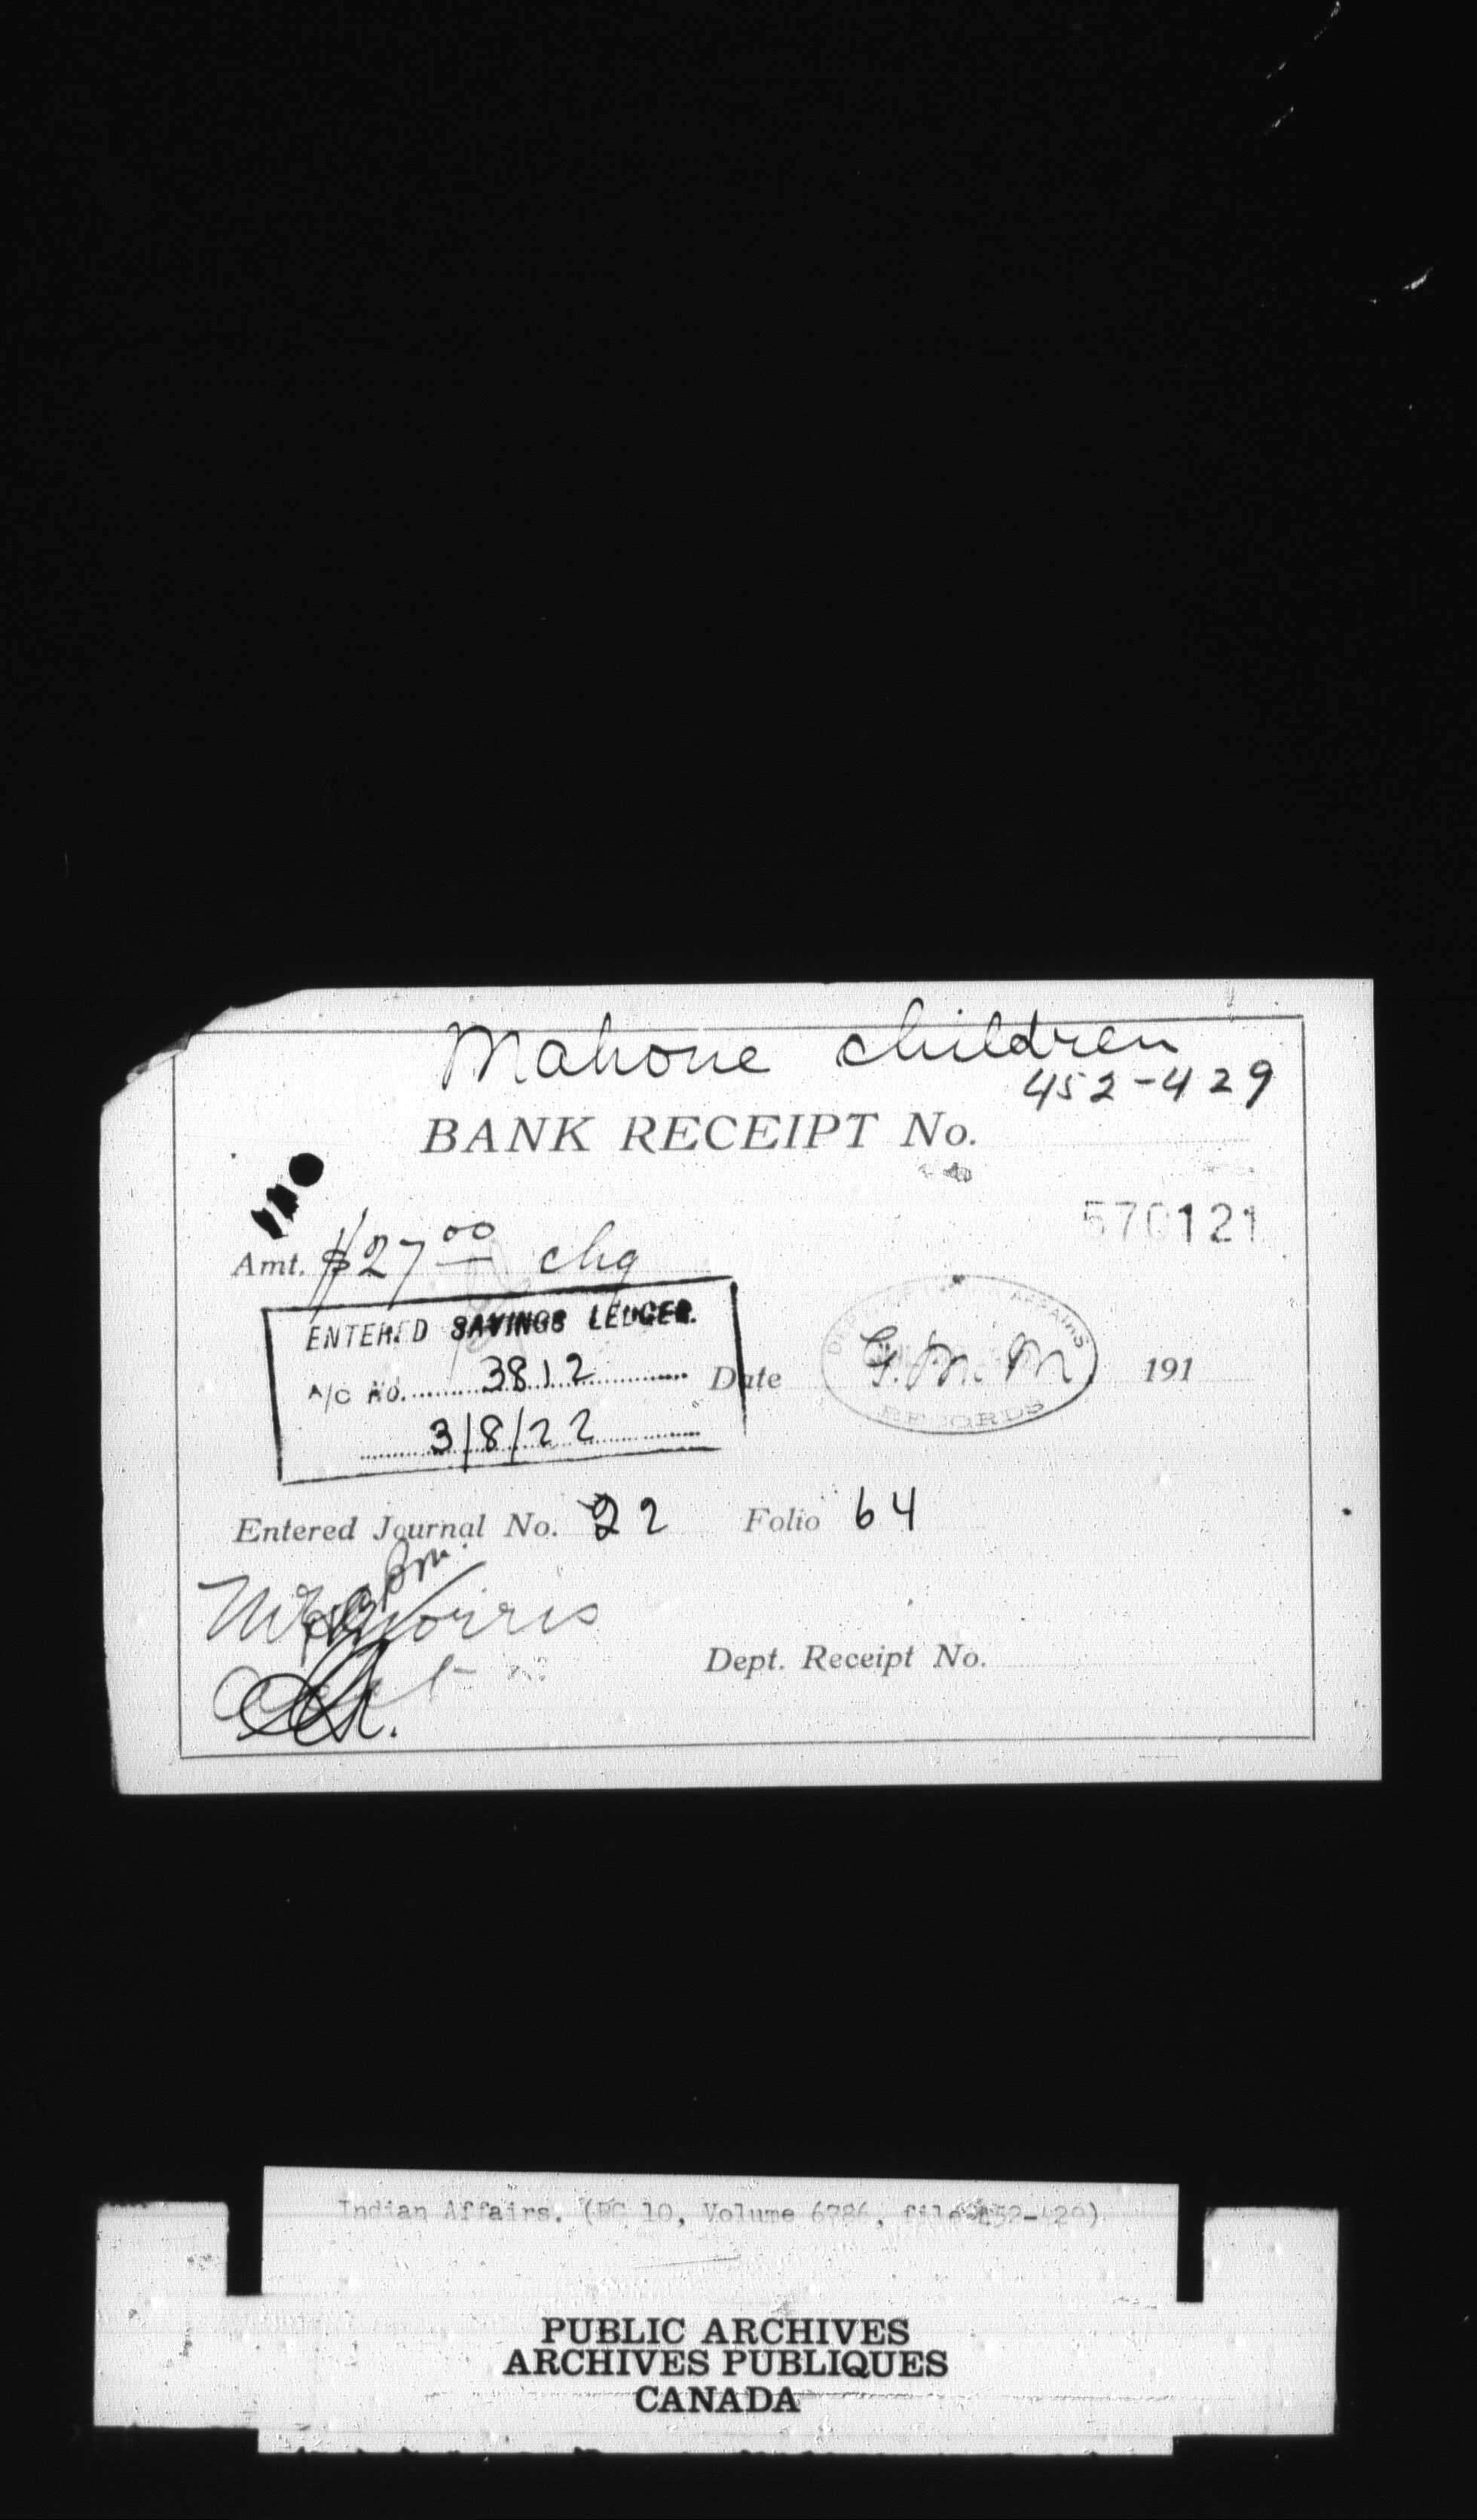 Mahone children
452-429
BANK RECEIPT No.
570121
Amt. $27 00 chq
ENTERED SAVINGS LEDGER.
A/C No. 3812
3/8/22
Date G.M.M. 191
AFFAIRS
RECORDS
Entered Journal No. 22 Folio 64
Morris
Dept. Receipt No.
Indian Affairs. (RG 10, Volume 6786, file 452-429)
PUBLIC ARCHIVES
ARCHIVES PUBLIQUES
CANADA